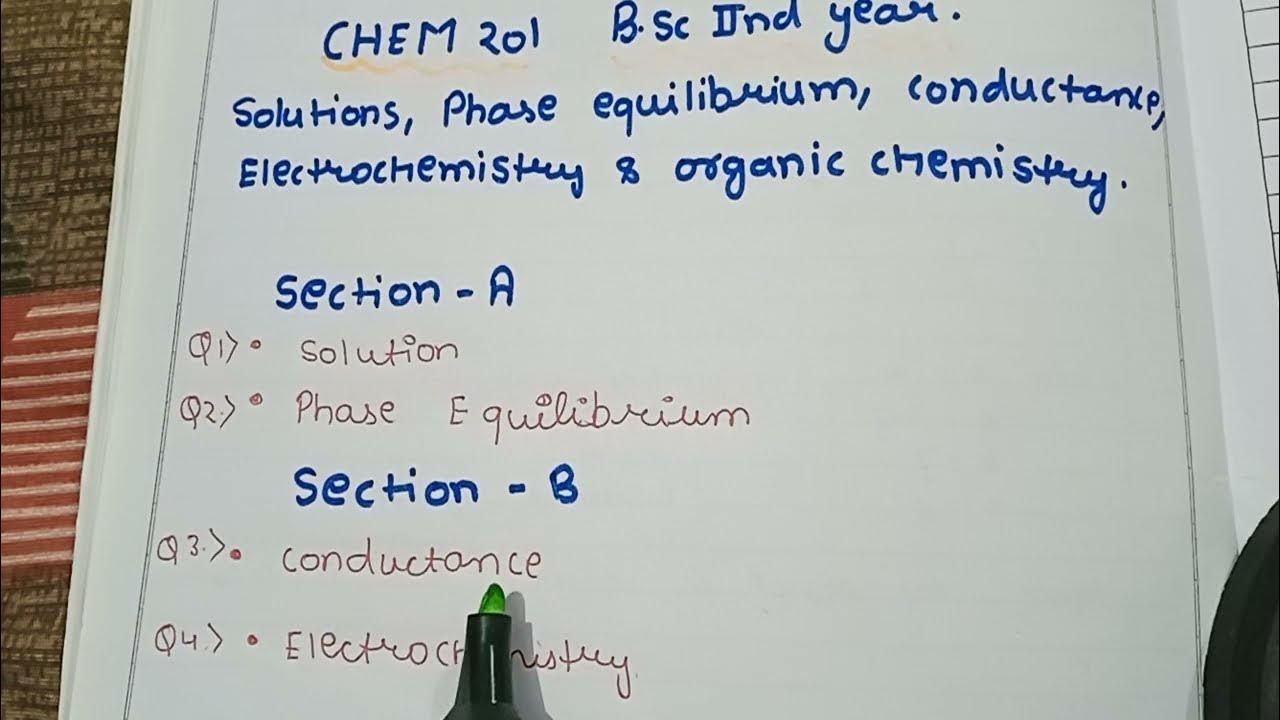 CHEM 201 B.Sc IInd year.
Solutions, Phase equilibrium, conductance,
Electrochemistry & organic chemistry.
Section - A
Q1> • Solution
Q2.> • Phase Equilibrium
Section - B
Q3.> • Conductance
Q4.> • Electrochemistry.